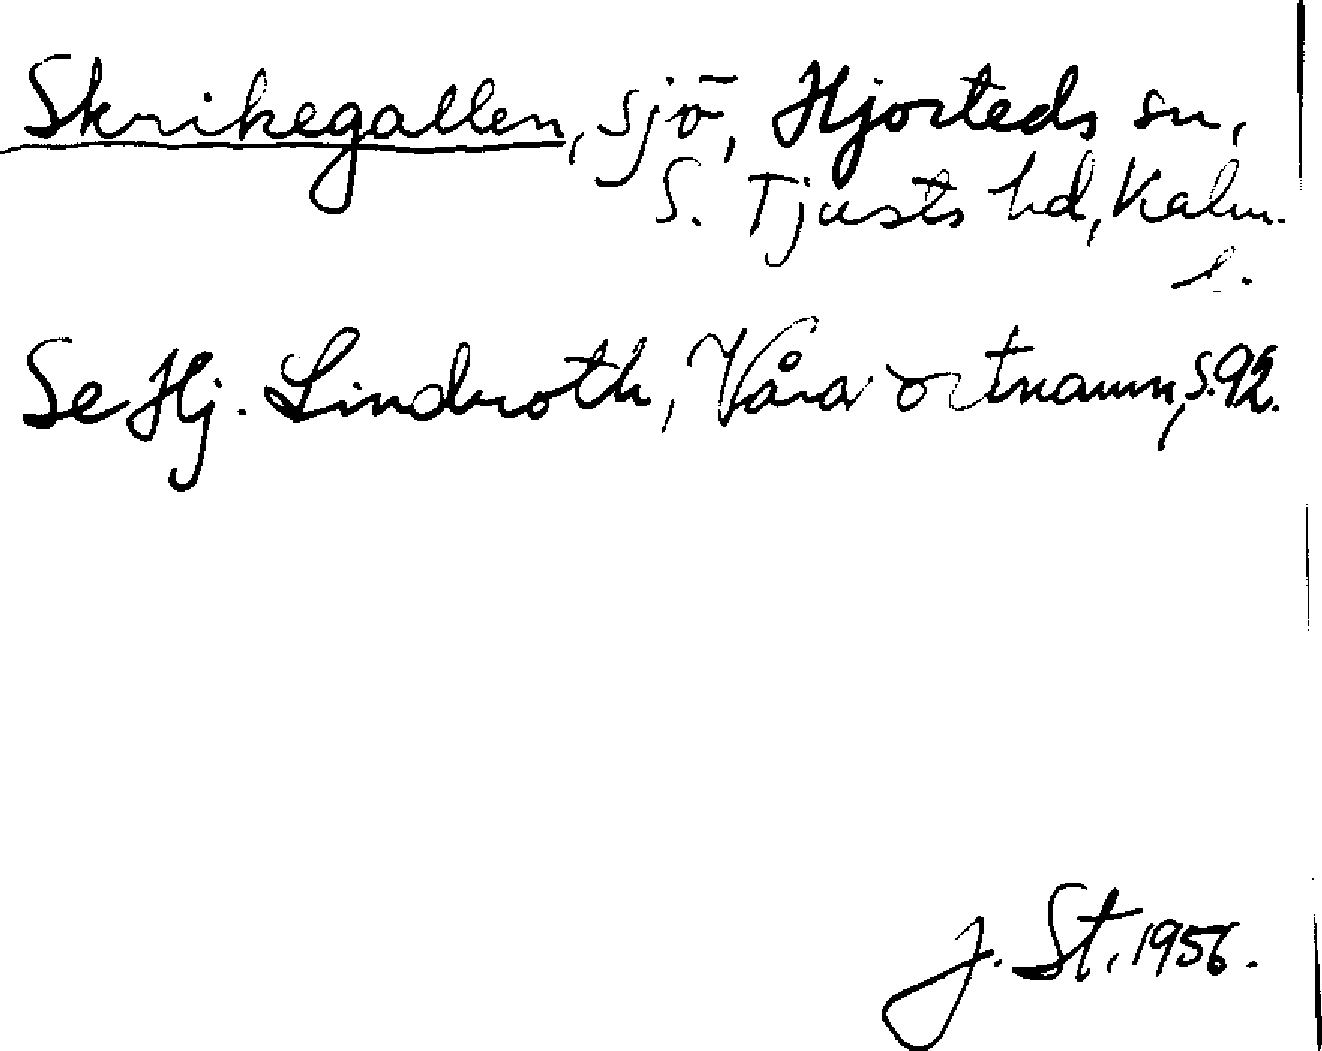 Skrikegallen, sjö, Hjorteds sn,
S. Tjusts hd, Kalm.
l.
Se Hj. Lindroth, Våra ortnamn, s. 92.
J. St. 1956.